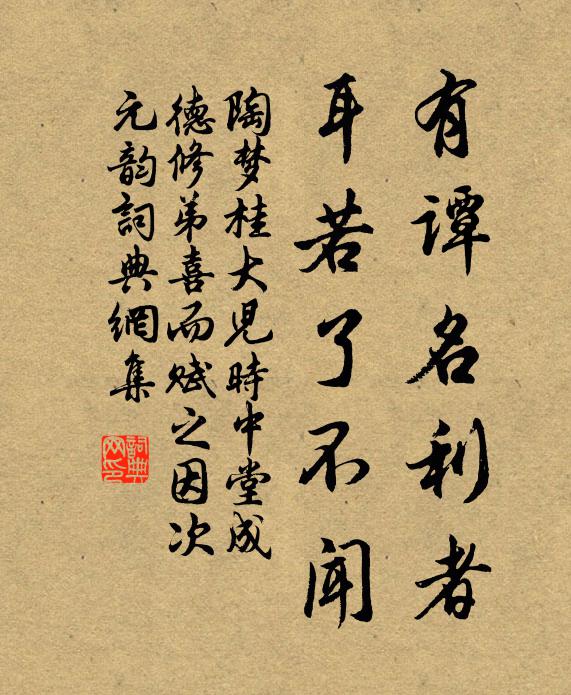 有谭名利者
耳若了不闻
陶梦桂大儿時中堂成
德修弟喜而赋之因次
元韵詞典網集
詞典网印